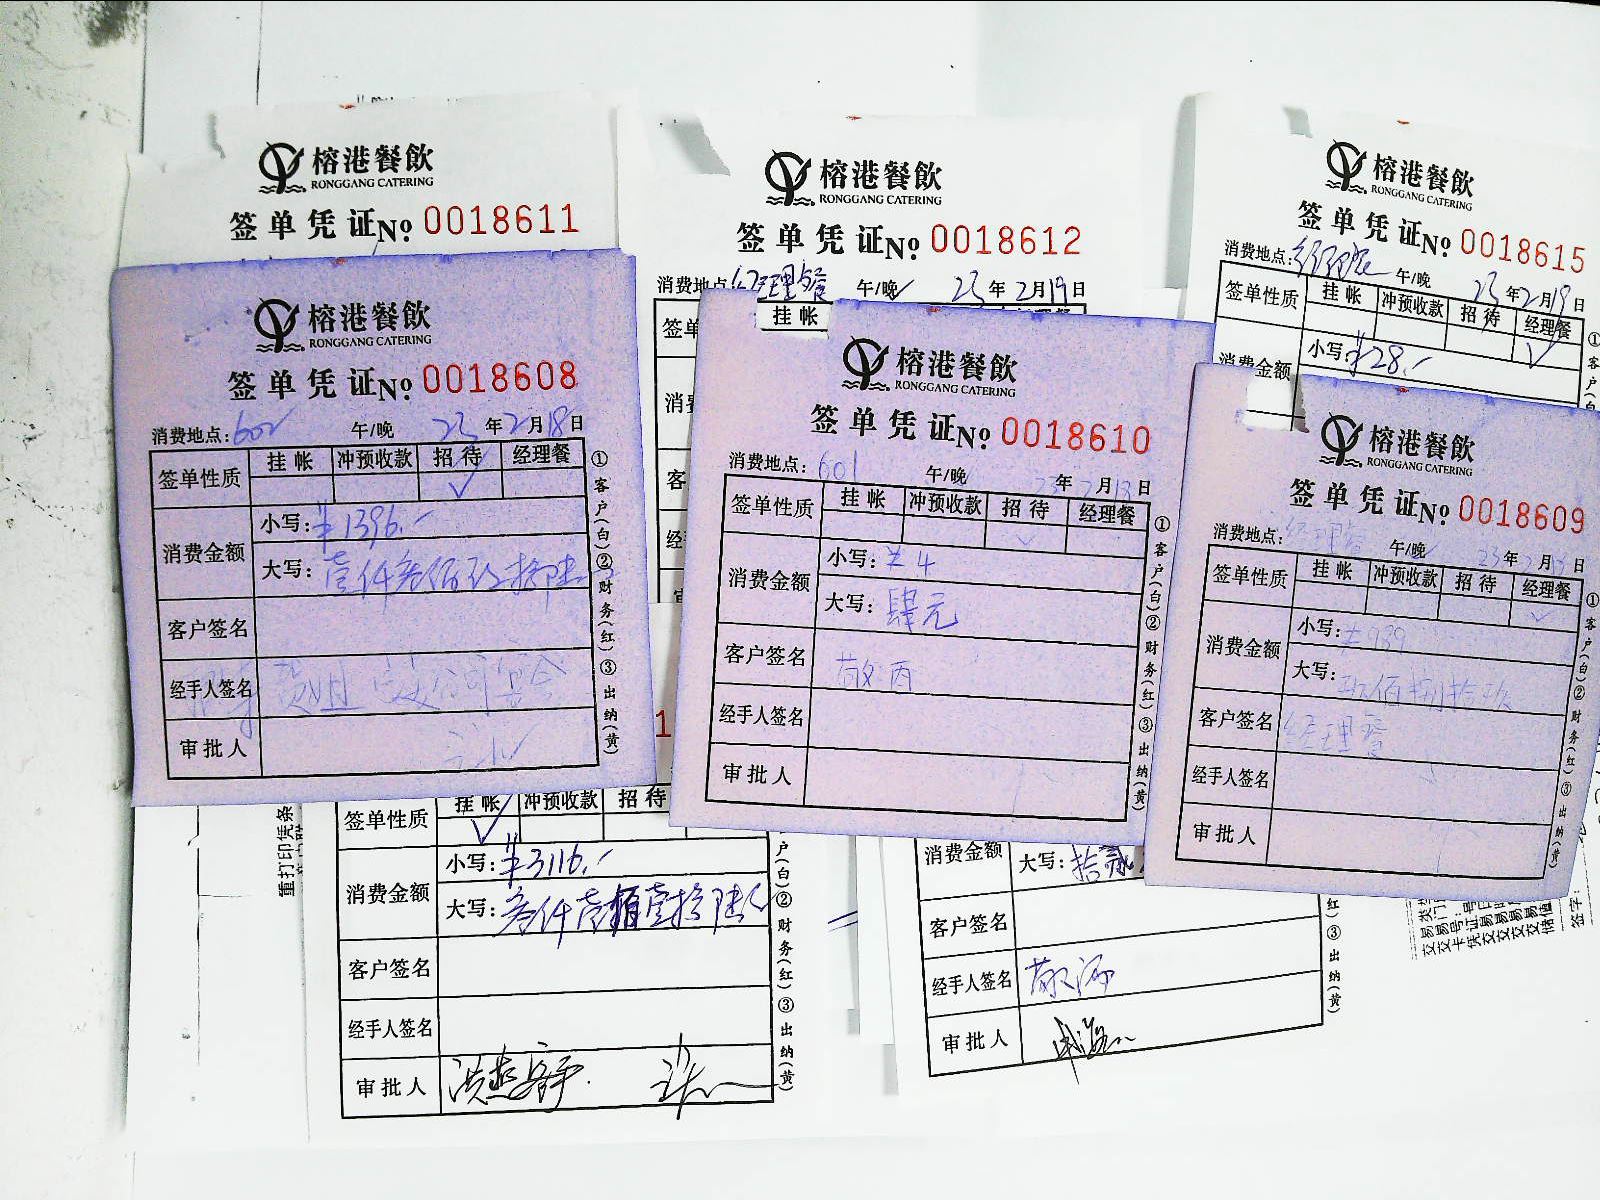 榕港餐飲
RONGGANG CATERING
签单凭证No. 0018611
榕港餐飲
RONGGANG CATERING
签单凭证No. 0018612
消费地点:经理餐 午/晚 23年2月19日
挂帐
榕港餐飲
RONGGANG CATERING
签单凭证No. 0018615
消费地点: 午/晚 23年2月19日
签单性质 挂帐 冲预收款 招待 经理餐
消费金额 小写:¥28.-
榕港餐飲
RONGGANG CATERING
签单凭证No. 0018608
消费地点:602 午/晚 23年2月18日
签单性质 挂帐 冲预收款 招待 经理餐
消费金额 小写:¥1396.-
大写:壹仟叁佰玖拾陆
客户签名
经手人签名
审批人
①客户(白)②财务(红)③出纳(黄)
榕港餐飲
RONGGANG CATERING
签单凭证No. 0018610
消费地点:601 午/晚 23年2月18日
签单性质 挂帐 冲预收款 招待 经理餐
消费金额 小写:¥4
大写:肆元
客户签名
经手人签名
审批人
①客户(白)②财务(红)③出纳(黄)
榕港餐飲
RONGGANG CATERING
签单凭证No. 0018609
消费地点:经理餐 午/晚 23年2月18日
签单性质 挂帐 冲预收款 招待 经理餐
消费金额 小写:¥989
大写:玖佰捌拾玖
客户签名 经理餐
经手人签名
审批人
①客户(白)②财务(红)③出纳(黄)
重打印凭条
签单性质 挂帐 冲预收款 招待
消费金额 小写:¥3116.-
大写:叁仟壹佰壹拾陆
客户签名
经手人签名
审批人
户(白)②财务(红)③出纳(黄)
消费金额 大写:拾
客户签名
经手人签名
审批人
红)③出纳(黄)
签字: